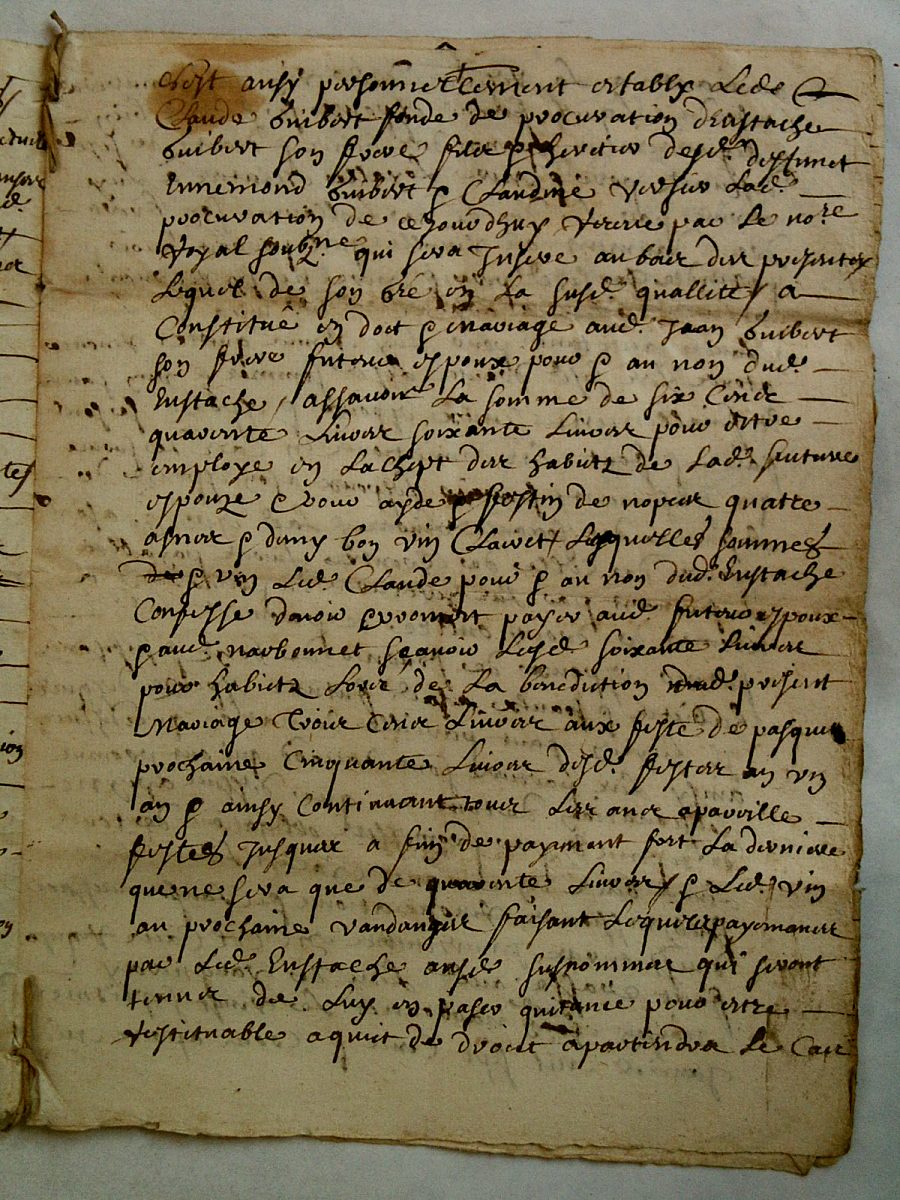 C'est ausy personnellement estably Led.
Claude Guibert fonde de procuration d'Eustache
Guibert son frere filz & heritier desd. deffunct
Ennemond Guibert & Claudine Versier lad.
procuration de ce jourdhuy receue par le nore
royal soubzne qui sera Insere au bas des presentes
Lequel de son gre en la susd. quallite a
Constitué en doct & mariage aud. Jean Guibert
son frere futeur espoux pour & au non dud.
Eustache, assavoir La somme de six Cens
quarente Livres soixante Livres pour estre
employe en Lachept des habietz de Lad. future
espouze & pour ayde & festin de nopces quatre
asnes & demy bon vin Clairet, Lesquelles sommes
& vin Led. Claude pour & au non dud. Eustache
Confesse devoir & promect payer aud. futeur espoux
& aud. narbonnet scavoir Lesd. soixante Livres
pour habietz Lors de La benediction dud. present
Mariage Trois Cens Livres aux feste de pasques
prochaine Cinquante Livres desd. festes en un
an & ainsy Continuant tous Les ans a pareille
festes Jusques a fin de payemant fort La derniere
que ne sera que de quarente Livres, & Led. vin
au prochaine vandanges faisant Lesquels payemans
par Led. Eustache aus. susnommes qui seront
tenus de Luy en passer quitance pour estre
restituable a quit de droict apartiendra le Cas